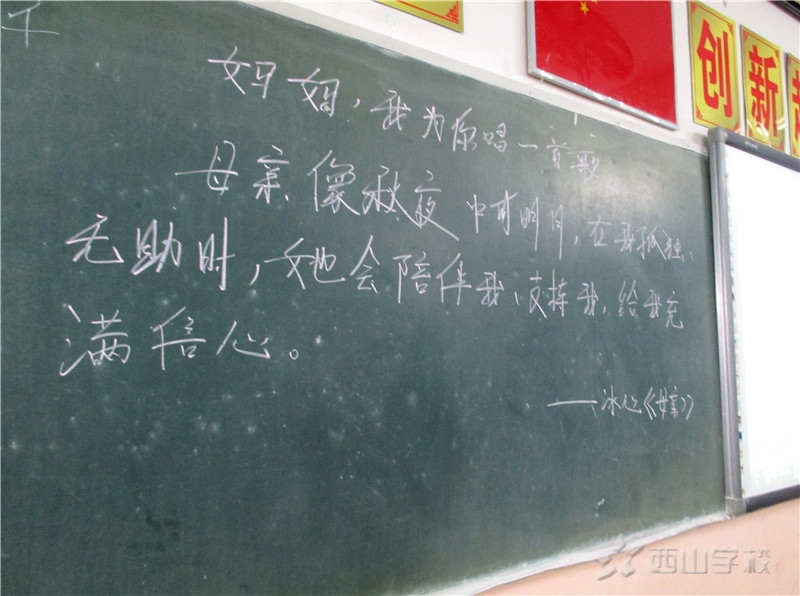 妈妈，我为你唱一首歌
母亲像秋夜中有明月，在我孤独、
无助时，她会陪伴我、支持我，给我充
满信心。
——冰心《母亲》
创新
西山学校